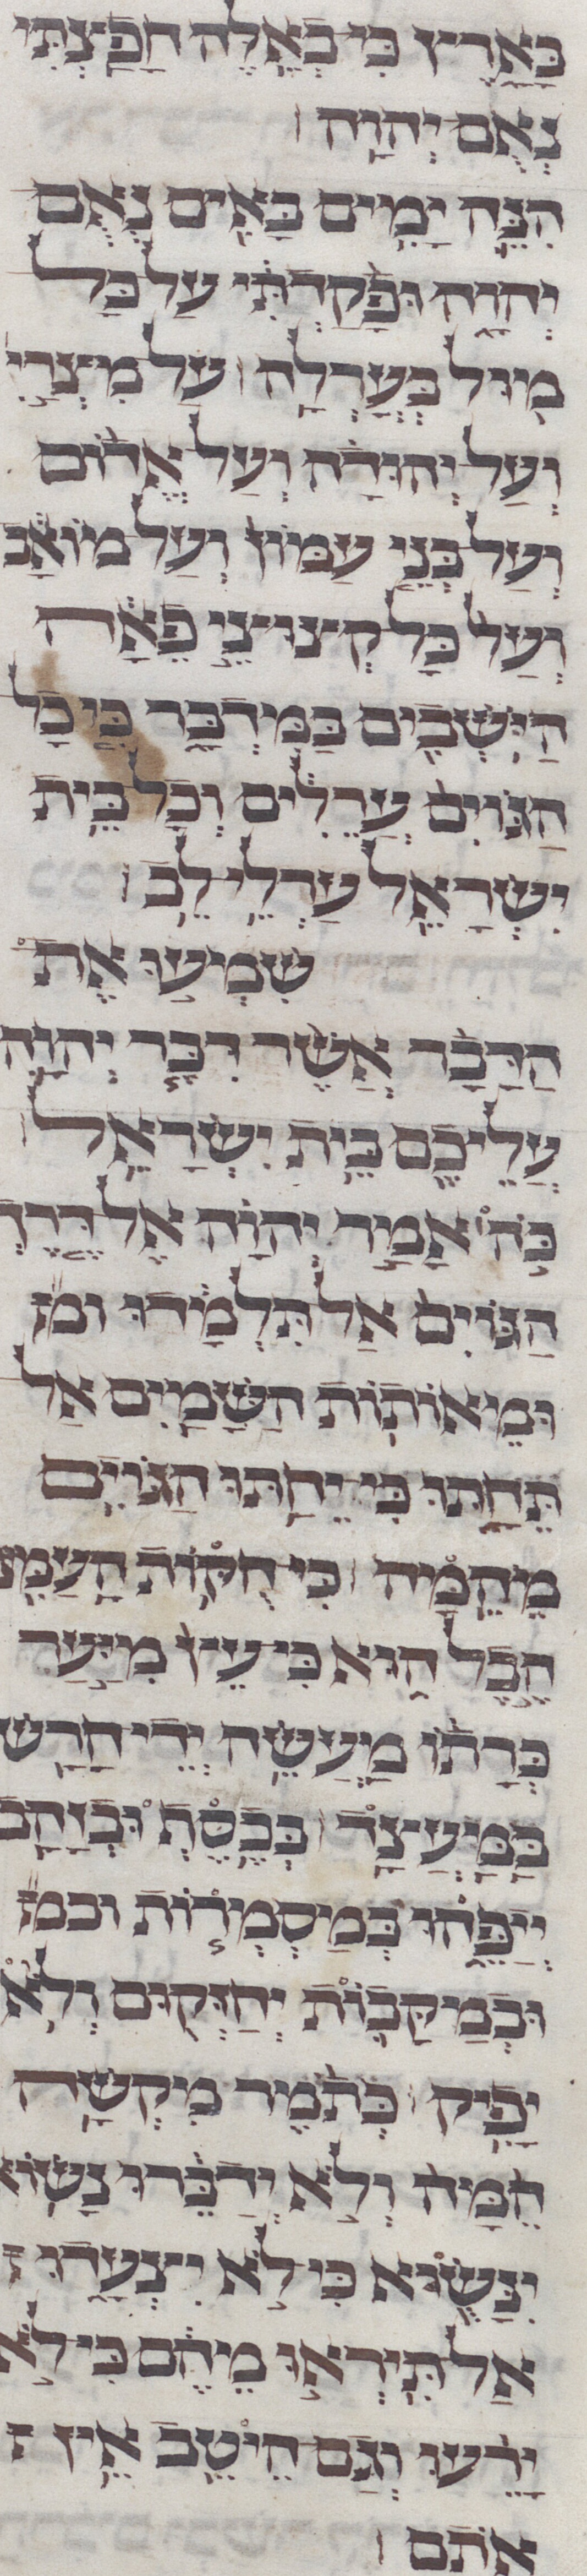 בָּאָרֶץ כִּי בְאֵלֶּה חָפַצְתִּי
נְאֻם יְהוָה׃
הִנֵּה יָמִים בָּאִים נְאֻם
יְהוָה וּפָקַדְתִּי עַל כָּל
מוּל בְּעָרְלָה׃ עַל מִצְרַי
וְעַל יְהוּדָה וְעַל אֱדוֹם
וְעַל בְּנֵי עַמּוֹן וְעַל מוֹאָב
וְעַל כָּל קְצוּצֵי פֵאָה
הַיֹּשְׁבִים בַּמִּדְבָּר כִּי כָל
הַגּוֹיִם עֲרֵלִים וְכָל בֵּית
יִשְׂרָאֵל עַרְלֵי לֵב׃
שִׁמְעוּ אֶת
הַדָּבָר אֲשֶׁר דִּבֶּר יְהוָה
עֲלֵיכֶם בֵּית יִשְׂרָאֵל׃
כֹּה אָמַר יְהוָה אֶל דֶּרֶךְ
הַגּוֹיִם אַל תִּלְמָדוּ ומ
וּמֵאֹתוֹת הַשָּׁמַיִם אַל
תֵּחָתּוּ כִּי יֵחַתּוּ הַגּוֹיִם
מֵהֵמָּה׃ כִּי חֻקּוֹת הָעַמִּ
הֶבֶל הוּא כִּי עֵץ מִיַּעַר
כְּרָתוֹ מַעֲשֵׂה יְדֵי חָרָשׁ
בַּמַּעֲצָד׃ בְּכֶסֶף וּבְזָהָב
יְיַפֵּהוּ בְּמַסְמְרוֹת ובמ
וּבְמַקָּבוֹת יְחַזְּקוּם וְלֹא
יָפִיק׃ כְּתֹמֶר מִקְשָׁה
הֵמָּה וְלֹא יְדַבֵּרוּ נָשׂוֹא
יִנָּשׂוּא כִּי לֹא יִצְעָדוּ
אַל תִּירְאוּ מֵהֶם כִּי לֹא
יָרֵעוּ וְגַם הֵיטֵב אֵין
אֹתָם׃